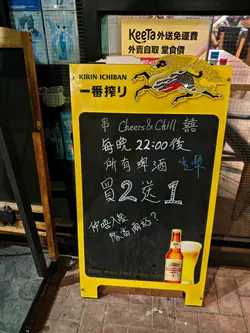 KeeTa外送免運費
外賣自取 堂食價
KIRIN ICHIBAN
一番搾り
串 Cheers & Chill 囍
每晚 22:00 後
所有啤酒
買2送1
仲唔入嚟
嘆番兩杯?